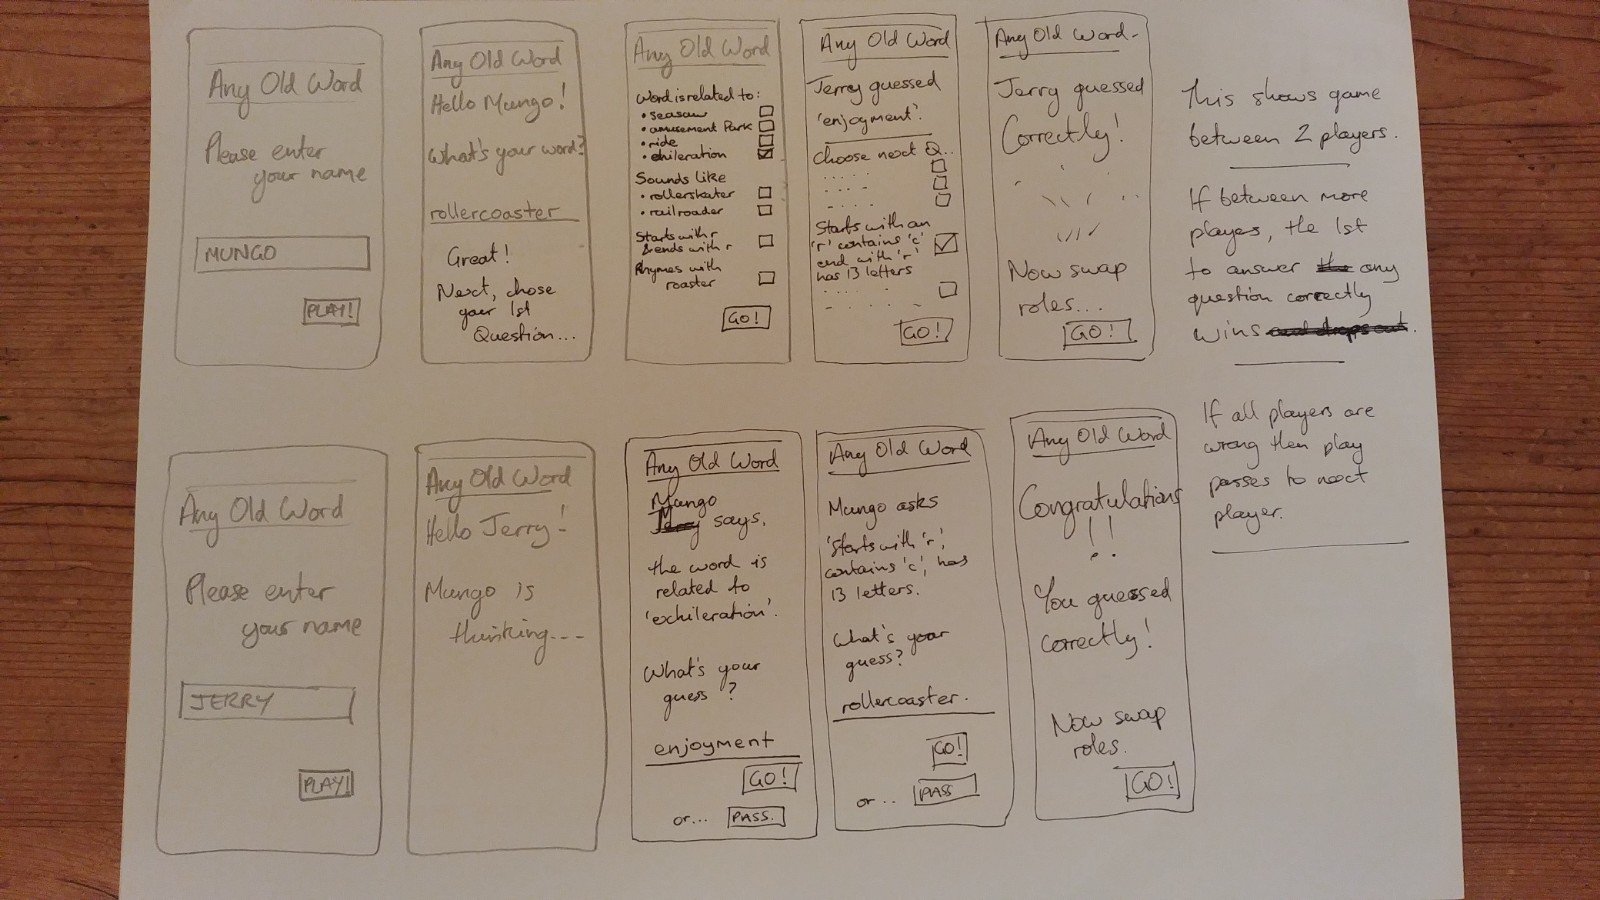 Any Old Word
Please enter
your name
MUNGO
PLAY!
Any Old Word
Hello Mungo!
What's your word?
rollercoaster
Great!
Next, chose
your 1st
Question...
Any Old Word
Word is related to:
• seasaw
• amusement Park
• ride
• exhileration
Sounds like
• rollerskater
• railroader
Starts with r
& ends with r
Rhymes with
roaster
GO!
Any Old Word
Jerry guessed
'enjoyment'.
Choose next Q...
Starts with an
'r' contains 'c'
end with 'r'
has 13 letters
GO!
Any Old Word
Jerry guessed
Correctly!
Now swap
roles...
GO!
This shows game
between 2 players.
If between more
players, the 1st
to answer the any
question correctly
wins and drops out.
If all players are
wrong then play
passes to next
player.
Any Old Word
Please enter
your name
JERRY
PLAY!
Any Old Word
Hello Jerry!
Mungo is
thinking...
Any Old Word
Mungo
Jerry says,
the word is
related to
'exhileration'.
What's your
guess?
enjoyment
GO!
or... PASS.
Any Old Word
Mungo asks
'starts with 'r',
contains 'c', has
13 letters.
What's your
guess?
rollercoaster.
GO!
or... PASS
Any Old Word
Congratulations
!!
You guessed
correctly!
Now swap
roles.
GO!